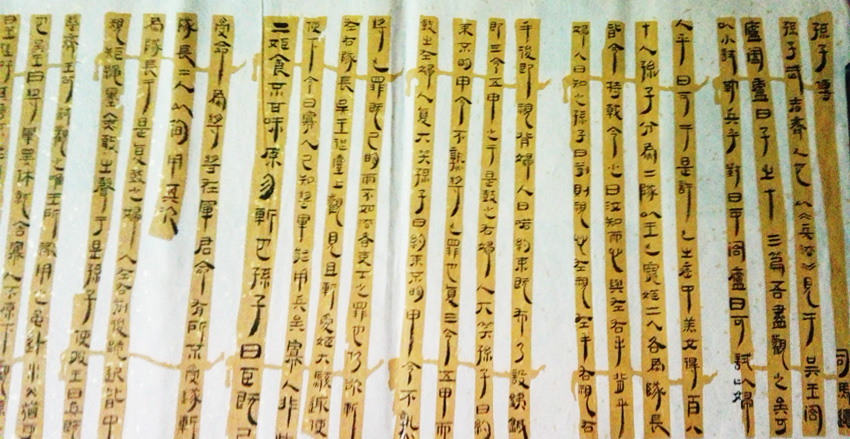 孫子傳
司馬遷
孫子武者齊人也以兵法見于吳王闔
廬闔廬曰子之十三篇吾盡觀之矣可
以小試勒兵乎對曰可闔廬曰可試以婦
人乎曰可于是許之出宮中美女得百八
十人孫子分為二隊以王之寵姬二人各為隊長
皆令持戟令之曰汝知而心與左右手背乎
婦人曰知之孫子曰前則視心左視左手右視右
手後即視背婦人曰諾約束既布乃設鈇鉞
即三令五申之于是鼓之右婦人大笑孫子曰約
束不明申令不熟將之罪也復三令五申而
鼓之左婦人復大笑孫子曰約束不明申令不熟
將之罪既已明而不如法者吏士之罪也乃欲斬
左右隊長吳王從臺上觀見且斬愛姬大駭趣使
使下令曰寡人已知將軍能用兵矣寡人非此
二姬食不甘味願勿斬也孫子曰臣既已
受命為將將在軍君命有所不受遂斬
隊長二人以徇用其次
為隊長于是復鼓之婦人左右前後跪起皆中
規矩繩墨無敢出聲于是孫子使報王曰兵既
整齊王可試觀之唯王所欲用之雖赴水火猶可
也吳王曰將軍罷休就舍寡人不願下觀
曰王徒好其言